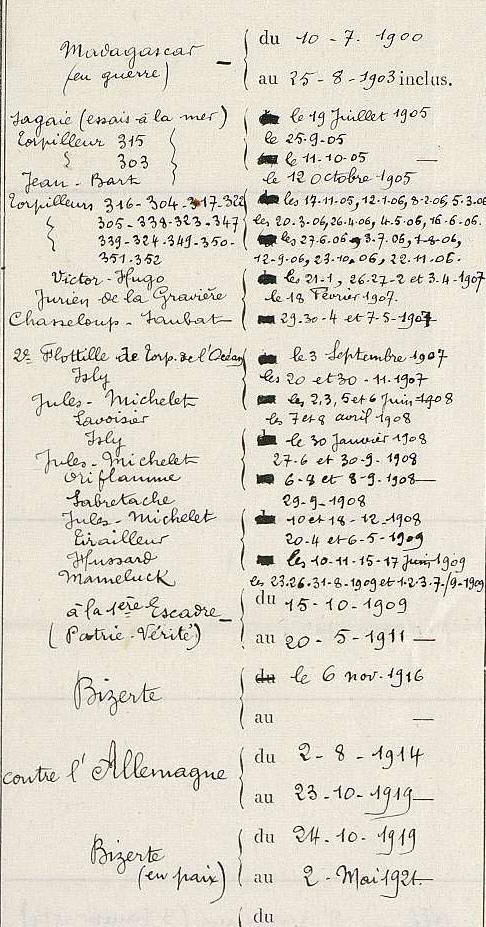 Madagascar du 10 - 7. 1900
(en guerre) - au 25 - 8 - 1903 inclus.
Sagaie (essais à la mer) le 19 Juillet 1905
Torpilleur 315 le 25-9-05
" 303 le 11-10-05 —
Jean-Bart le 12 Octobre 1905
Torpilleurs 316-304-317-322 les 17-11-05, 12-1-06, 8-2-06, 5-3-06
" 305-338-323-347 les 20-3-06, 26-4-06, 4-5-06, 16-6-06.
339-324-349-350- les 27-6-06, 3-7-06, 1-8-06,
351-352 12-9-06, 23-10-06, 22-11-06.
Victor-Hugo les 21-1, 26.27-2 et 3.4-1907
Jurien de la Gravière le 18 Février 1907.
Chasseloup-Laubat 29-30-4 et 7-5-1907
2e Flottille de Torp. de l'Océan le 3 Septembre 1907
Isly les 20 et 30-11-1907
Jules-Michelet les 2,3,5 et 6 Juin 1908
Lavoisier les 7 et 8 avril 1908
Isly le 30 Janvier 1908
Jules-Michelet 27-6 et 30-9-1908
Oriflamme 6-8 et 8-9-1908 —
Sabretache 29-9-1908
Jules-Michelet 10 et 18-12-1908
Tirailleur 20-4 et 6-5-1909
Hussard les 10-11-15-17 Juin 1909
Mameluck les 23.26-31-8-1909 et 1.2.3.7-/9-1909
à la 1ère Escadre - du 15-10-1909
(Patrie-Vérité) au 20-5-1911 —
Bizerte du le 6 nov. 1916
au —
contre l'Allemagne du 2-8-1914
au 23-10-1919 —
Bizerte du 24.10-1919
(en paix) au 2-Mai 1921
du